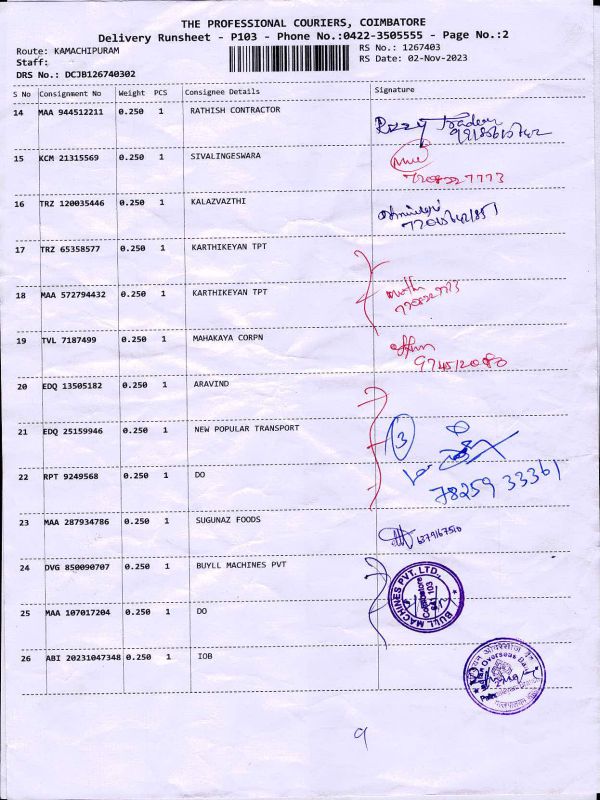 THE PROFESSIONAL COURIERS, COIMBATORE
Delivery Runsheet - P103 - Phone No.:0422-3505555 - Page No.:2
Route: KAMACHIPURAM RS No.: 1267403
Staff: RS Date: 02-Nov-2023
DRS No.: DCJB126740302
S No Consignment No Weight PCS Consignee Details Signature
14 MAA 944512211 0.250 1 RATHISH CONTRACTOR
15 KCM 21315569 0.250 1 SIVALINGESWARA
16 TRZ 120035446 0.250 1 KALAZVAZTHI
17 TRZ 65358577 0.250 1 KARTHIKEYAN TPT
18 MAA 572794432 0.250 1 KARTHIKEYAN TPT
19 TVL 7187499 0.250 1 MAHAKAYA CORPN
974512080
20 EDQ 13505182 0.250 1 ARAVIND
21 EDQ 25159946 0.250 1 NEW POPULAR TRANSPORT
3
22 RPT 9249568 0.250 1 DO
78259 33361
23 MAA 287934786 0.250 1 SUGUNAZ FOODS
6379167510
24 DVG 850090707 0.250 1 BUYLL MACHINES PVT
BULL MACHINES PVT. LTD.,
Coimbatore
641 103
25 MAA 107017204 0.250 1 DO
26 ABI 20231047348 0.250 1 IOB
Indian Overseas Bank
9